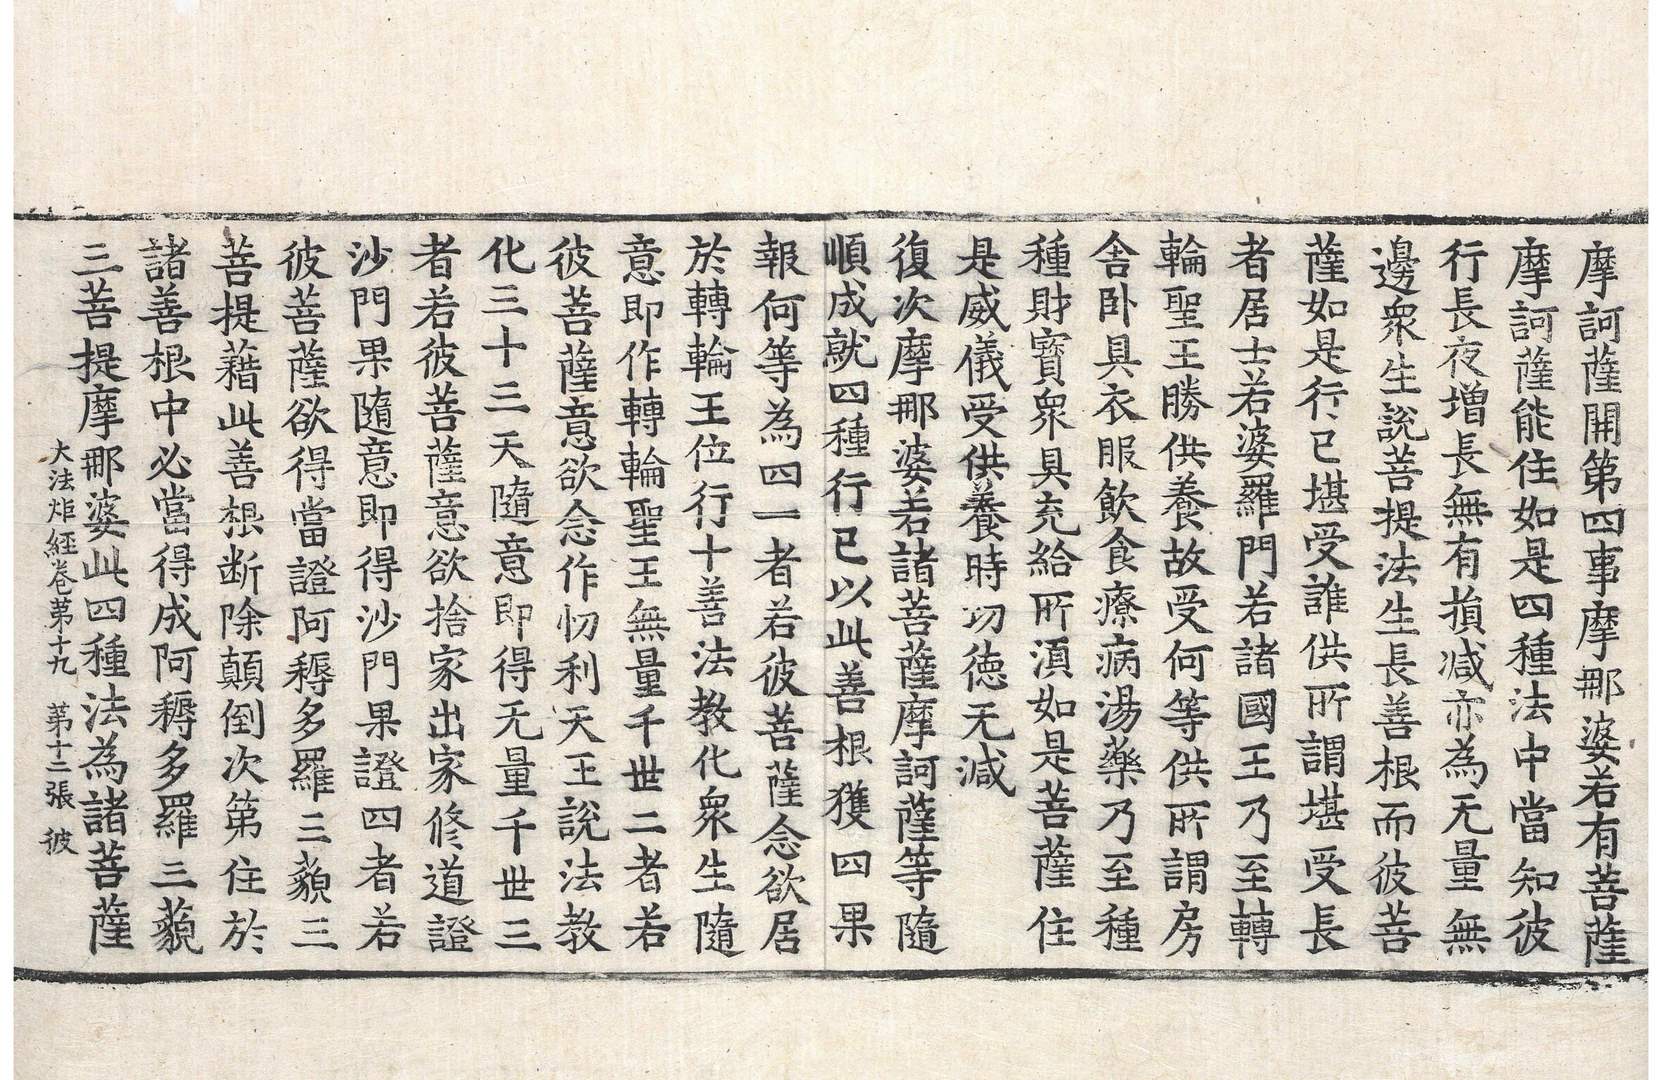 摩訶薩開第四事摩那婆若有菩薩
摩訶薩能住如是四種法中當知彼
行長夜增長無有損减亦為无量無
邊衆生說菩提法生長善根而彼菩
薩如是行已堪受誰供所謂堪受長
者居士若婆羅門若諸國王乃至轉
輪聖王勝供養故受何等供所謂房
舍卧具衣服飲食療病湯藥乃至種
種財寶衆具充給所湏如是菩薩住
是威儀受供養時功徳无减
復次摩那婆若諸菩薩摩訶薩等隨
順成就四種行已以此善根獲四果
報何等為四一者若彼菩薩念欲居
於轉輪王位行十善法教化衆生隨
意即作轉輪聖王無量千世二者若
彼菩薩意欲念作忉利天王說法教
化三十三天隨意即得无量千世三
者若彼菩薩意欲捨家出家修道證
沙門果隨意即得沙門果證四者若
彼菩薩欲得當證阿耨多羅三藐三
菩提藉此善根断除顛倒次第住於
諸善根中必當得成阿耨多羅三藐
三菩提摩那婆此四種法為諸菩薩
大法炬經卷第十九 第十二張 彼